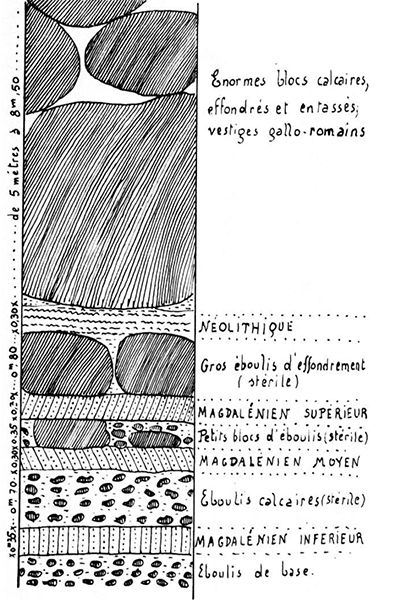 Enormes blocs calcaires,
effondrés et entassés;
vestiges gallo-romains
de 5 mètres à 8m,50
NÉOLITHIQUE
Gros éboulis d'effondrement
(stérile)
0m 80
MAGDALÉNIEN SUPÉRIEUR
Petits blocs d'éboulis (stérile)
MAGDALÉNIEN MOYEN
Eboulis calcaires (stérile)
0m 70
MAGDALÉNIEN INFÉRIEUR
Eboulis de base.